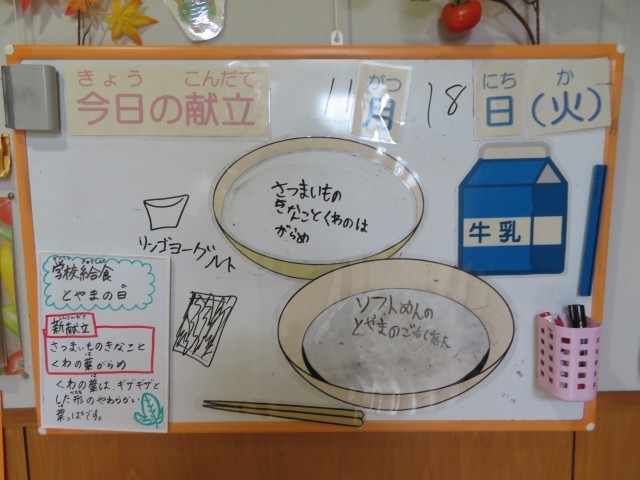 きょう こんだて
今日の献立
11 がつ 18 にち か
月 日(火)
さつまいもの
きなことくわのは
がらめ
牛乳
リンゴヨーグルト
ソフトめんの
とやまの
学校給食
とやまの日
新献立
さつまいものきなこと
くわの葉がらめ
くわの葉は、ギザギザと
した形のやわらかい
葉っぱです。